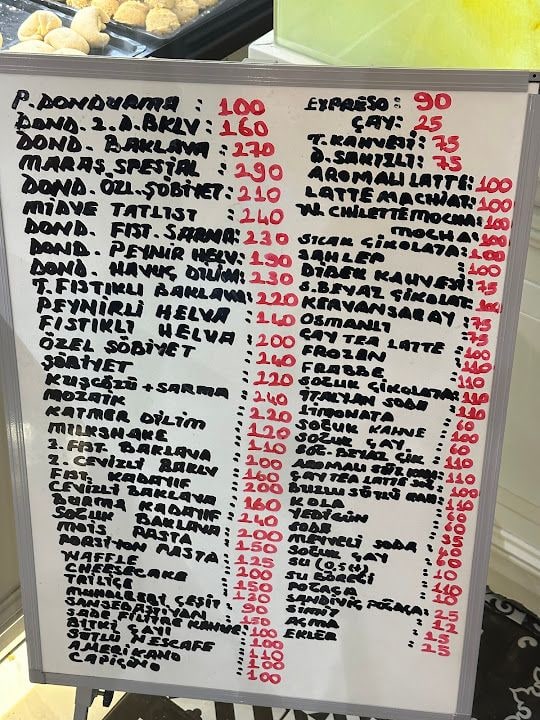 P.DONDURMA : 100
DOND. 2.D.BKLV : 160
DOND. BAKLAVA : 270
MARAŞ SPESİAL : 290
DOND. ÖZL.ŞÖBİYET : 210
MİDYE TATLISI : 240
DOND. FIST. SARMA : 230
DOND. PEYNİR HELV : 190
DOND. HAVUÇ DİLİM : 230
T.FISTIKLI BAKLAVA : 220
PEYNİRLİ HELVA : 140
FISTIKLI HELVA : 200
ÖZEL ŞÖBİYET : 240
ŞÖBİYET : 220
KUŞGÖZÜ + SARMA : 240
MOZAİK : 220
KATMER DİLİM : 120
MİLKSHAKE : 110
FIST. BAKLAVA : 200
2. CEVİZLİ BAKLV : 160
FIST. KADAYIF : 200
CEVİZLİ BAKLAVA : 160
BURMA KADAYIF : 240
SOĞUK BAKLAVA : 200
PASTA : 150
PORSİYON PASTA : 125
WAFFLE : 200
CHEESECAKE : 150
TRİLİÇE : 130
MUHALLEBİ ÇEŞİT : 90
SANSEBASTİYAN : 150
SADE FİLTRE KAHVE : 100
BİTKİ ÇAYI : 100
SÜTLÜ NESCAFE : 110
AMERİKANO : 100
CAPİÇİNO : 100
EXPRESO : 90
ÇAY : 25
T.KAHVESİ : 75
D.SAKIZLI : 75
AROMALI LATTE : 100
LATTE MACHİAT : 100
W.CHİLETTE MOCHA : 100
MOCHA : 100
SICAK ÇİKOLATA : 100
SAHLEP : 100
DİBEK KAHVESİ : 75
S.BEYAZ ÇİKOLAT : 100
KERVANSARAY : 75
OSMANLI : 75
ÇAY TEA LATTE : 100
FROZEN : 110
FRABBE : 110
SOĞUK ÇİKOLATA : 110
İTALYAN SODA : 110
LİMONATA : 60
SOĞUK KAHVE : 100
SOĞUK ÇAY : 60
SOĞ. BEYAZ ÇİK : 110
AROMALI : 110
ÇAY TEA LATTE SOĞ : 100
BUZLU SÜTLÜ : 110
KOLA : 60
YEDİGÜN : 60
SODA : 35
MEYVELİ SODA : 40
SOĞUK ÇAY : 60
SU (0,5 lt) : 10
SU BÖREĞİ : 110
POĞAÇA : 10
SANDİVİÇ POĞAÇA : 25
SİMİT : 12
AÇMA : 15
EKLER : 25